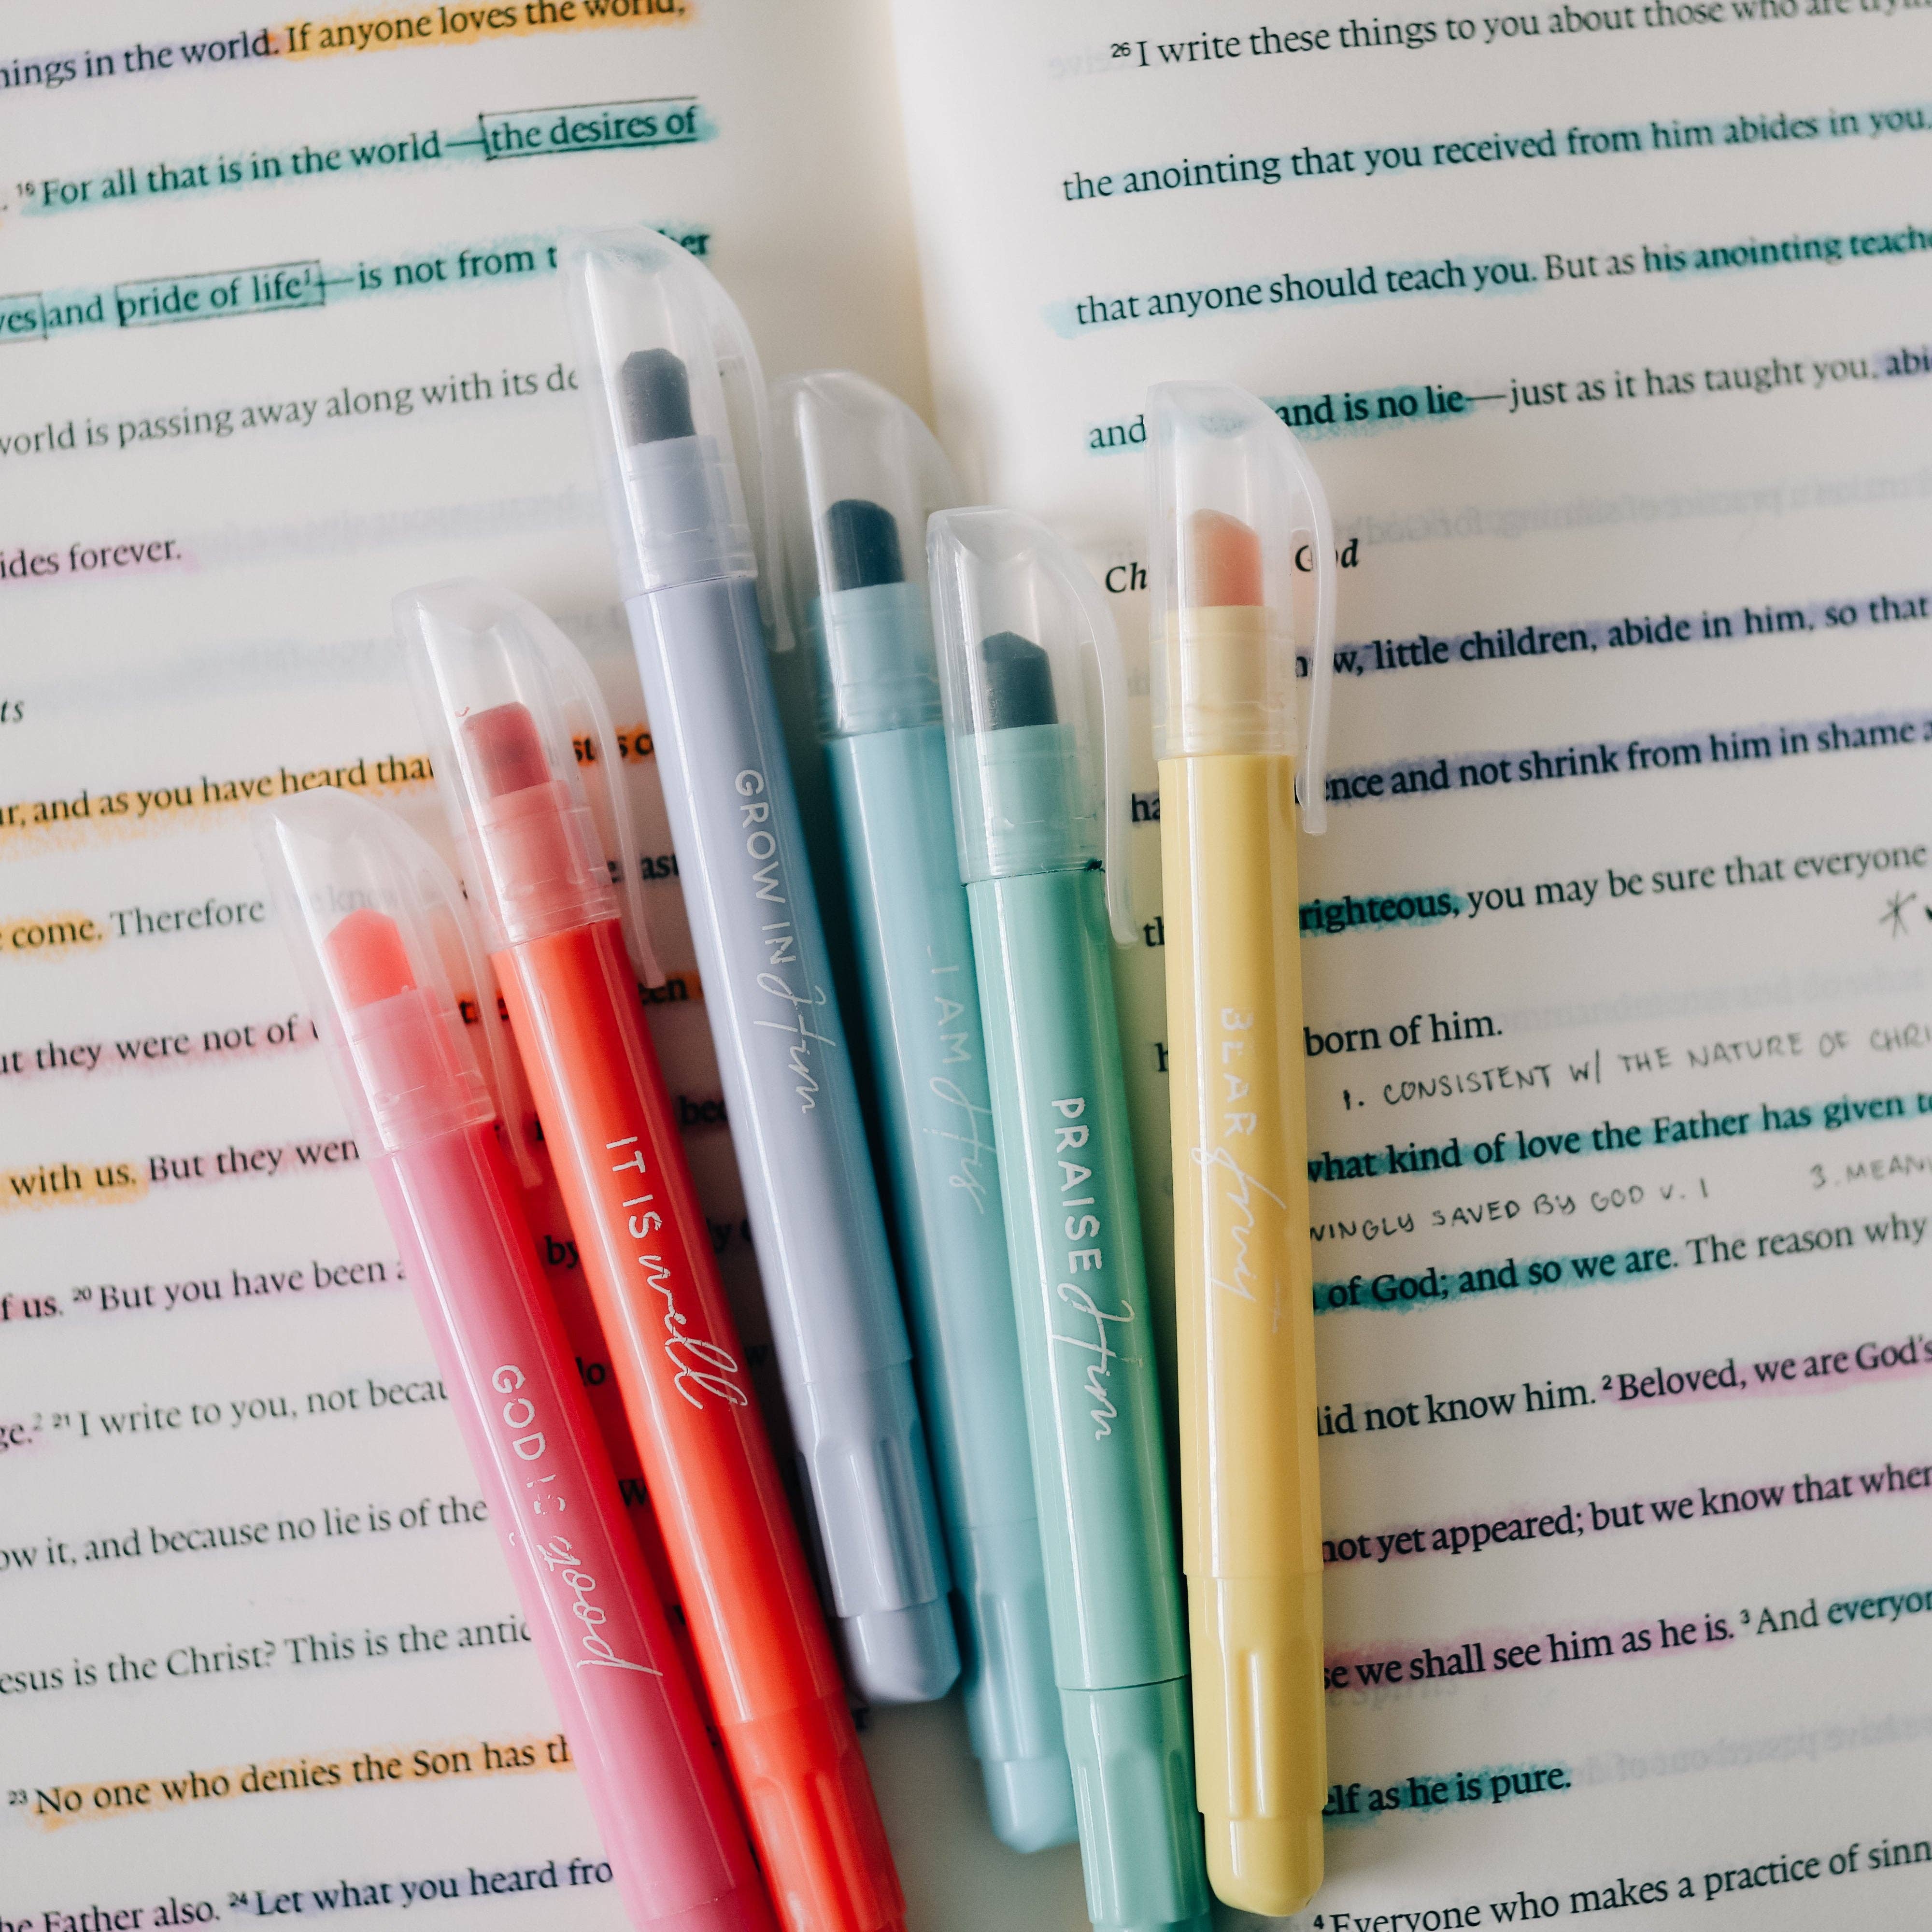 things in the world. If anyone loves the world,
. 16 For all that is in the world—the desires of
and pride of life1—is not from
world is passing away along with its
forever.
and as you have heard that
come. Therefore
they were not of
with us. But they
of us. 20 But you have been
2 21 I write to you, not
it, and because no lie is of the
is the Christ? This is the
23 No one who denies the Son has
Father also. 24 Let what you heard
26 I write these things to you about those who are
the anointing that you received from him abides in you,
that anyone should teach you. But as his anointing
and and is no lie—just as it has taught you,
God
little children, abide in him, so that
and not shrink from him in shame
righteous, you may be sure that everyone
born of him.
1. CONSISTENT W/ THE NATURE OF
what kind of love the Father has given
SAVED BY GOD V. 1 3.
of God; and so we are. The reason why
did not know him. 2 Beloved, we are God's
not yet appeared; but we know that
we shall see him as he is. 3 And
as he is pure.
4 Everyone who makes a practice of
GOD IS good
IT IS well
GROW IN Him
I AM His
PRAISE Him
BEAR fruit